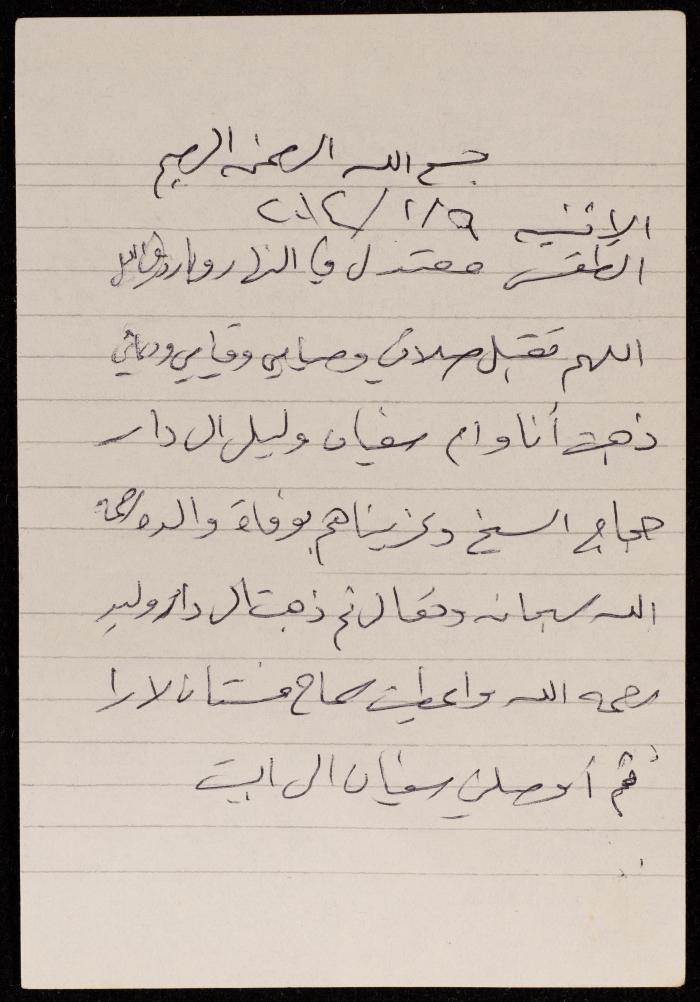 بسم الله الرحمن الرحيم
الاثنين ٢٠١٢/١/٩
الطقس معتدل في النهار وبارد في الليل
اللهم تقبل صلاتي وصيامي وقيامي ودعائي
ذهبت أنا وام سفيان وليل الى دار
حجاج الشيخ وعزيناهم بوفاة والده رحمه
الله سبحانه وتعالى ثم ذهبت الى دار وليد
رحمه الله واعطيت سماح فستان لارا
ثم أوصلني سفيان الى البيت